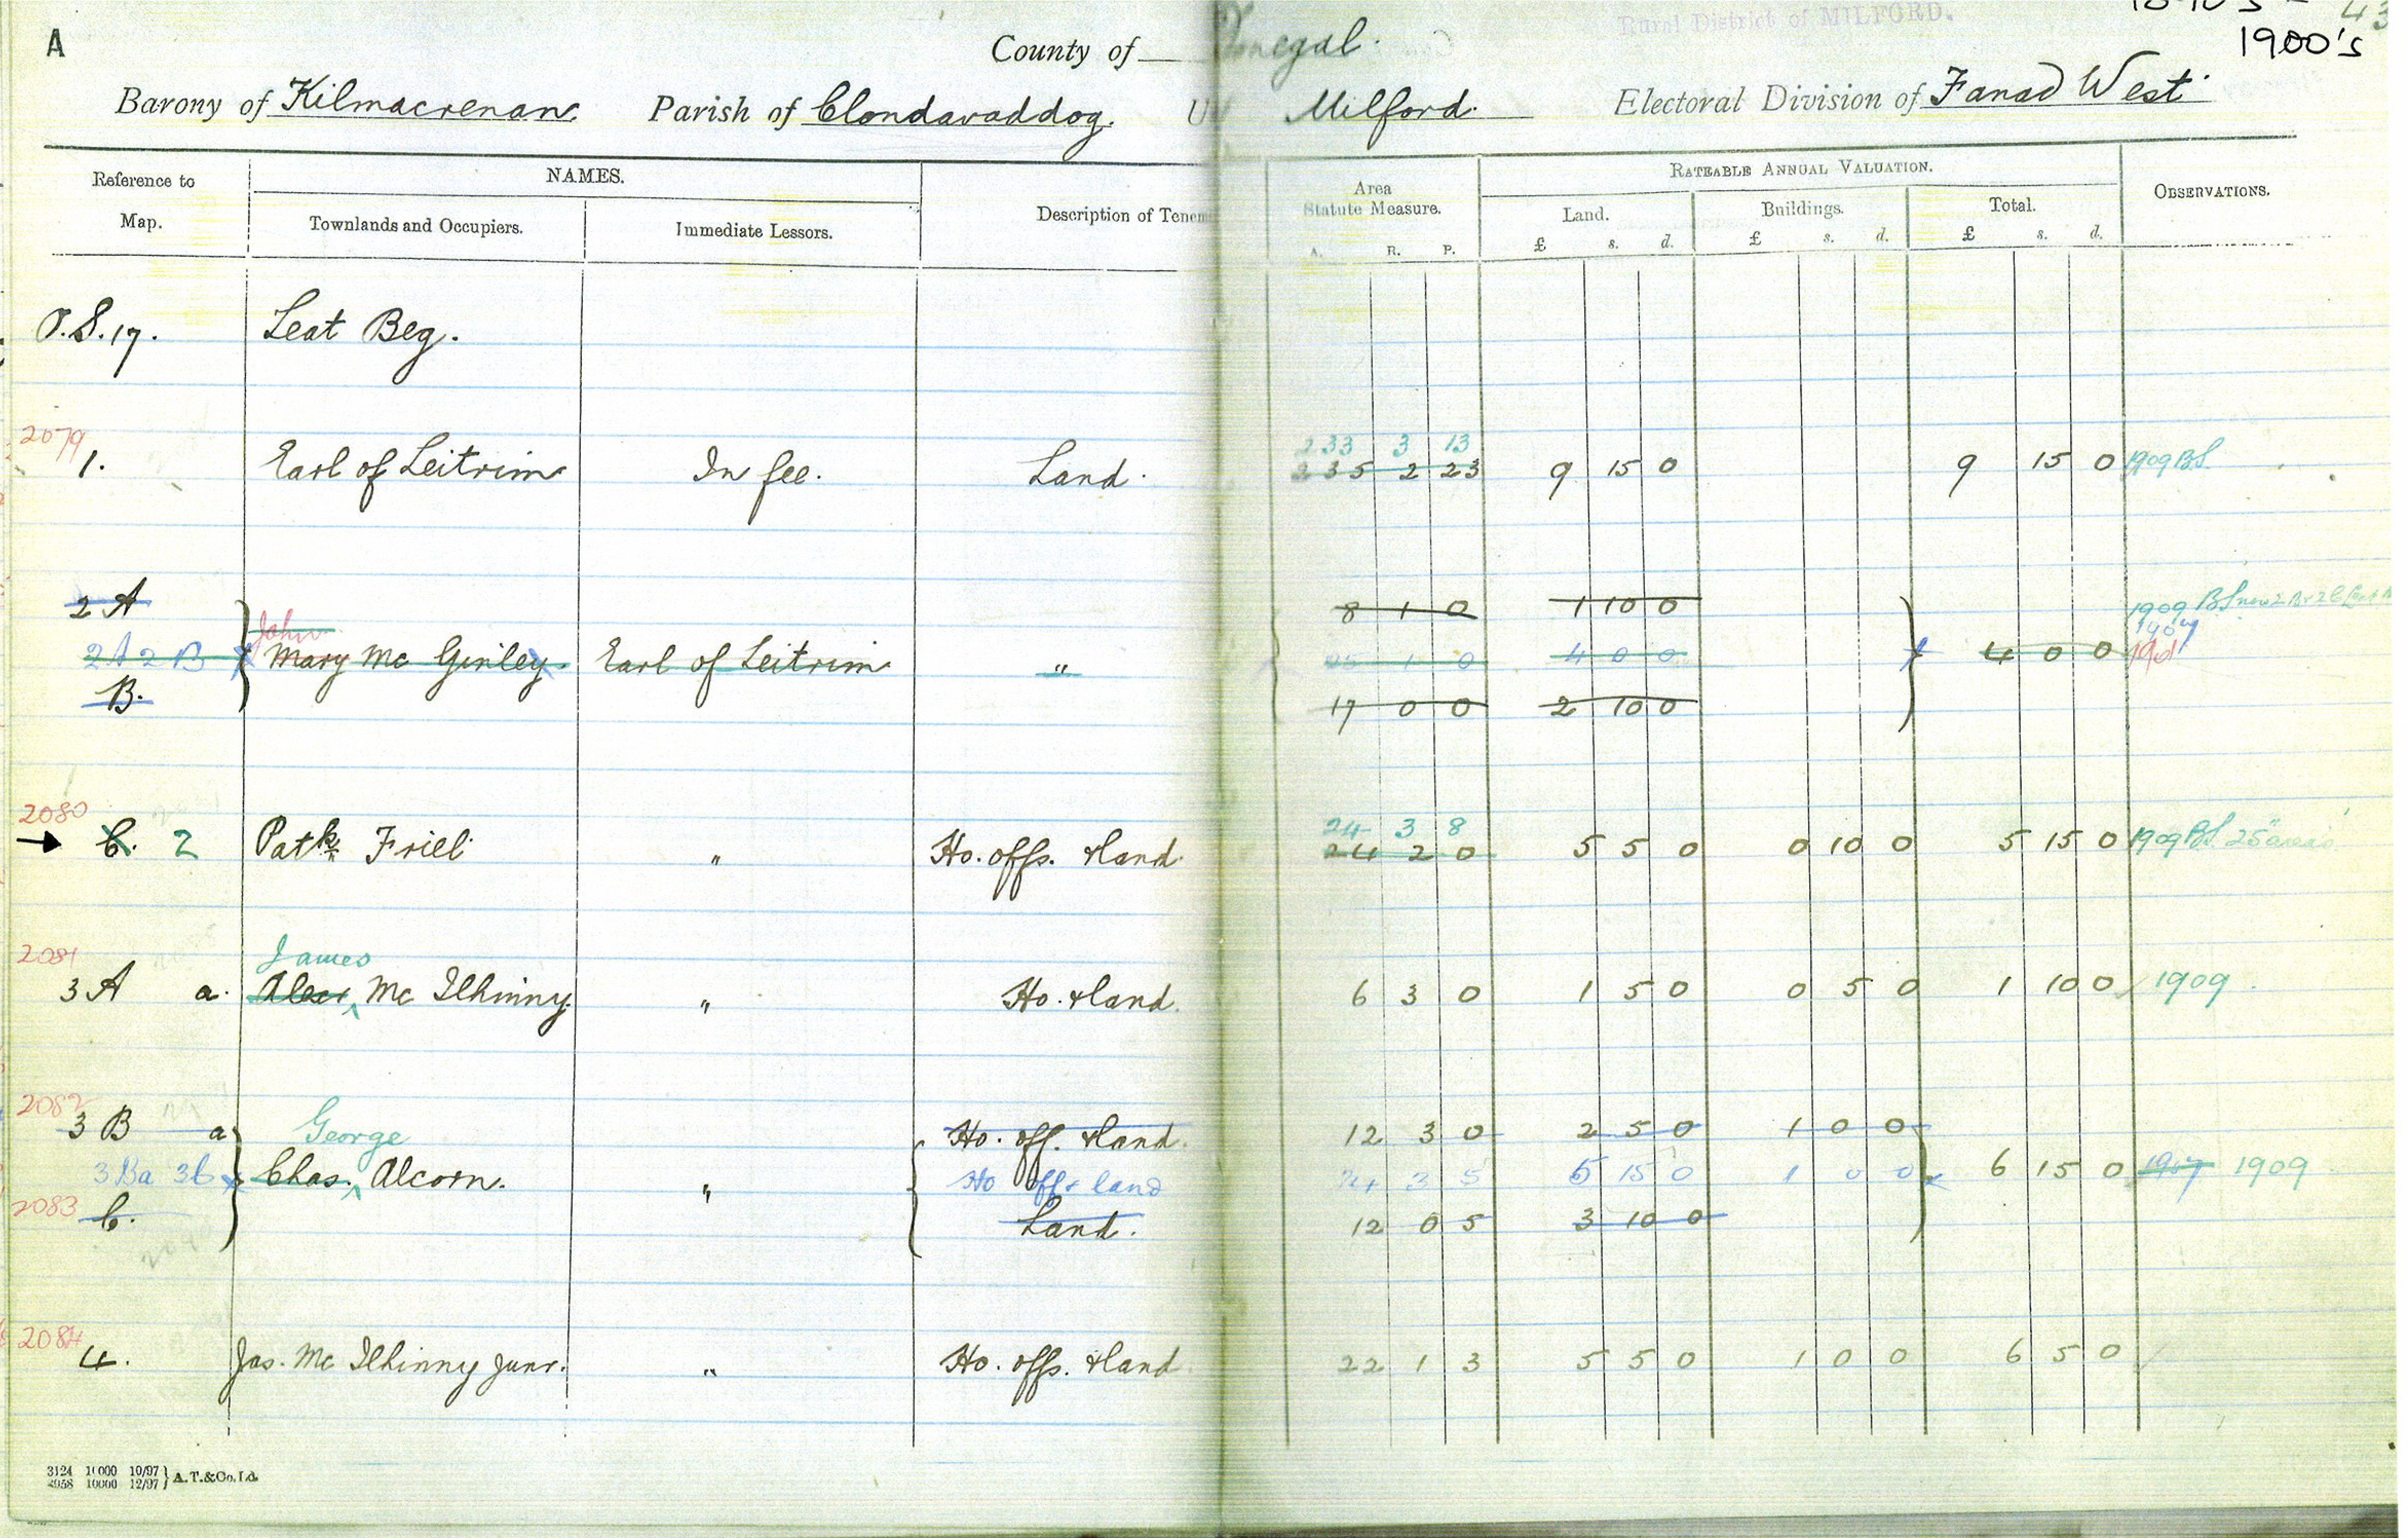 A
County of Donegal.
Rural District of MILFORD.
43
1900's
Barony of Kilmacrenan. Parish of Clondavaddog. U Milford. Electoral Division of Fanad West
Reference to Map.
NAMES.
Townlands and Occupiers.
Immediate Lessors.
Description of Tenem
Area Statute Measure.
A. R. P.
RATEABLE ANNUAL VALUATION.
Land. Buildings. Total.
£ s. d. £ s. d. £ s. d.
OBSERVATIONS.
O.S. 17. Leat Beg.
2079 233 3 13
1. Earl of Leitrim In fee. Land. 235 2 23 9 15 0 9 15 0 1909 BS.
2 A 8 1 0 1 10 0 1909 BS now 2B & 2C
John 1907
2A 2B Mary Mc Ginley Earl of Leitrim " 25 1 0 4 0 0 4 0 0 1901
B. 17 0 0 2 10 0
2080 24 3 8
C. 2 Patk Friel " Ho. offs. & land 24 2 0 5 5 0 0 10 0 5 15 0 1909 BS. 25" areas
2081 James
3 A a. Alexr Mc Ilhinny. " Ho. & land. 6 3 0 1 5 0 0 5 0 1 10 0 1909.
2082
3 B a George Ho. off. & land. 12 3 0 2 5 0 1 0 0
3Ba 3b Chas. Alcorn. " Ho off & land 24 3 5 5 15 0 1 0 0 6 15 0 1907 1909
2083 C. Land. 12 0 5 3 10 0
2084
4. Jas. Mc Ilhinny Junr. " Ho. offs. & land 22 1 3 5 5 0 1 0 0 6 5 0
3124 10000 10/97
2058 10000 12/97 } A. T. & Co. Ld.